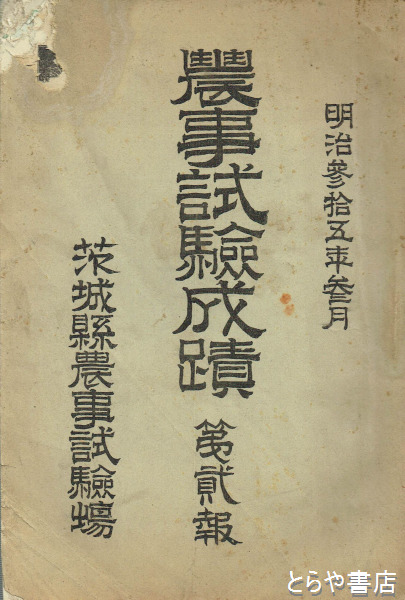 明治參拾五年叄月
農事試驗成蹟
第貳報
茨城縣農事試驗場
とらや書店